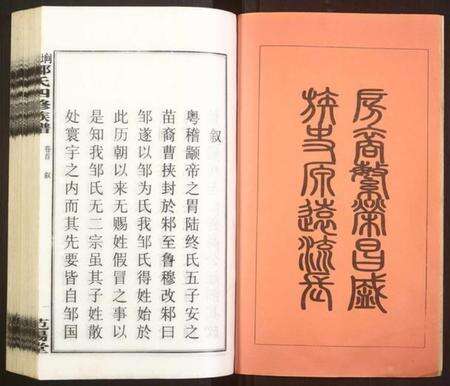 房裔繁榮昌盛
族史源遠流長
叙
粤稽颛帝之胄陆终氏五子安之
苗裔曹挟封於邾至鲁穆改邾曰
邹遂以邹为氏我邹氏得姓始於
此历朝以来无赐姓假冒之事以
是知我邹氏无二宗虽其子姓散
处寰宇之内而其先要皆自邹国
邹氏四修族谱
卷首
叙